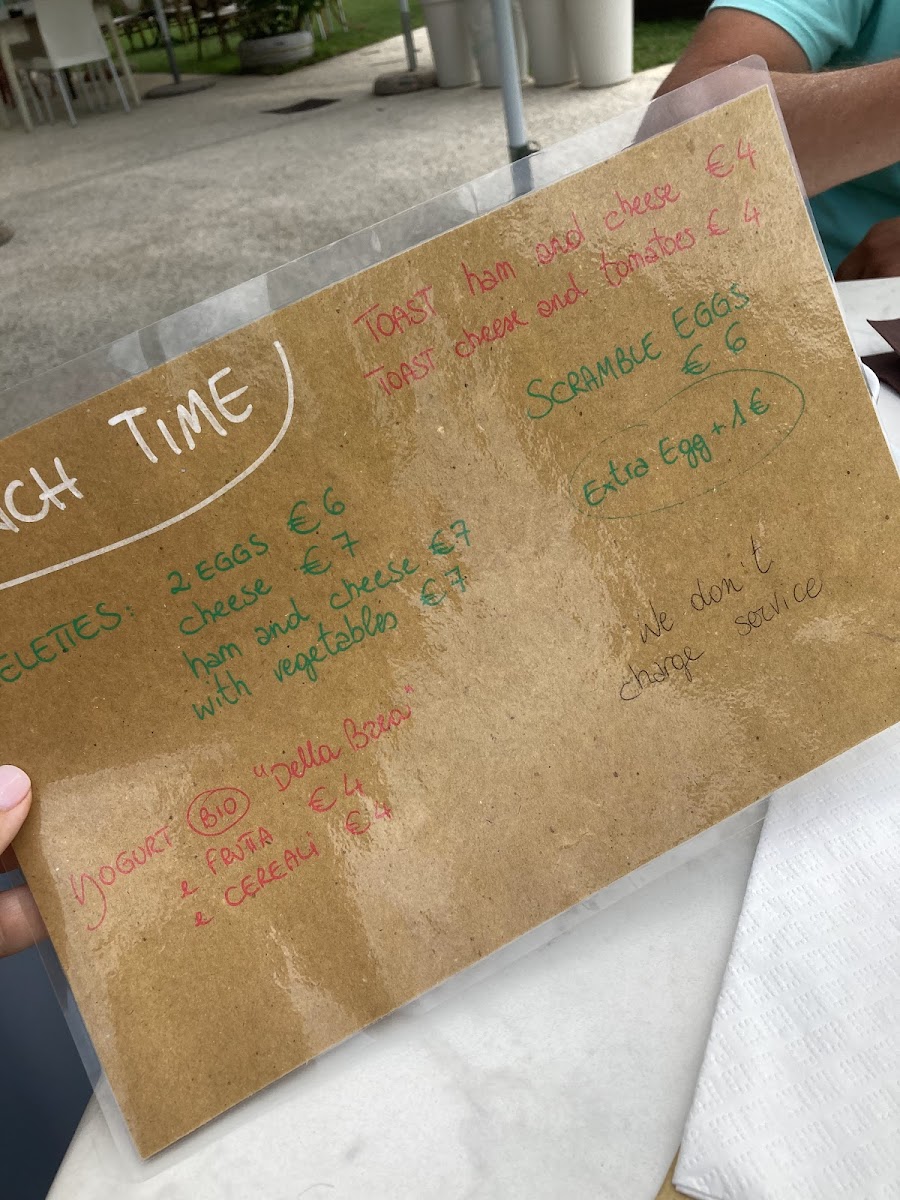 NCH TIME
TOAST ham and cheese €4
TOAST cheese and tomatoes € 4
SCRAMBLE EGGS
€ 6
Extra Egg + 1€
ELETTES: 2 EGGS €6
cheese €7
ham and cheese €7
with vegetables €7
We don't
charge service
YOGURT BIO "Della Brea"
e FRUTTA €4
e CEREALI €4